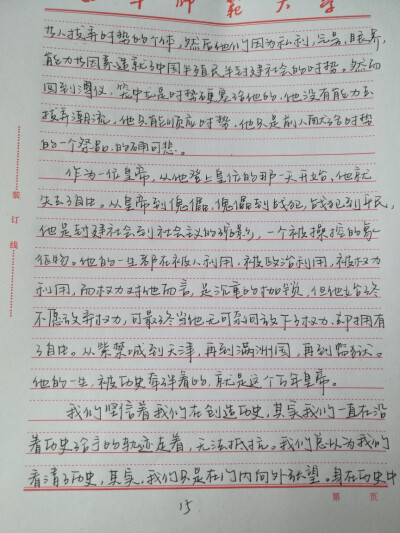 华 师 范 大 学
装
订
线
类人拨弄时势的个体，然后他们因为私利，气量，眼界，
能力等因素造就了中国半殖民半封建社会的时势。然而
回到溥仪，
时势硬塞给他的，他没有能力去
拨弄潮流，他只能顺应时势，他只是前人酿大错时势
的一个
可悲。
作为一位皇帝，从他登上皇位的那一天开始，他就
失去了自由。从皇帝到傀儡，傀儡到战犯，战犯到平民，
他是封建社会到社会主义的缩影，一个被操控的象
征物。他的一生都在被人利用，被政治利用，被权力
利用，而权力对他而言，是沉重的枷锁，但他始终
不愿放弃权力，可最终当他无可奈何放下了权力，却拥有
了自由。从紫禁城到天津，再到满洲国，再到监狱。
他的一生，被历史弹着的，就是这个百年皇帝。
我们坚信着我们在创造历史，其实我们一直在沿
着历史给予的轨迹走着，无法抵抗。我们总以为我们
看清了历史，其实，我们只是在门内向外张望。身在历史中
第 页
15